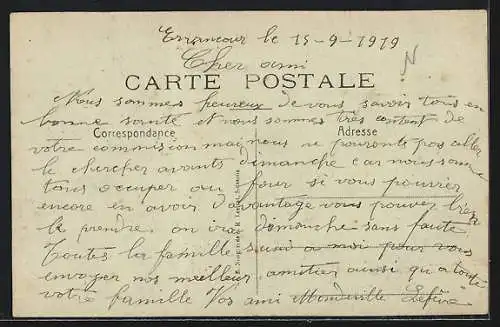 le 15-9-1919
Cher ami
CARTE POSTALE
Nous sommes heureux de vous savoir tous en
bonne santé et nous sommes très content de
Correspondance Adresse
votre commission mai nous ne pouront pas aller
le chercher avants dimanche car nous somme
tous occuper au four si vous pouvier
encore en avoir d'avantage vous pouver bien
le prendre on ira dimanche sans faute
Toutes la famille a moi pour vous
envoyer nos meilleur amitier ainsi qu a toute
votre famille Vos ami Lefève